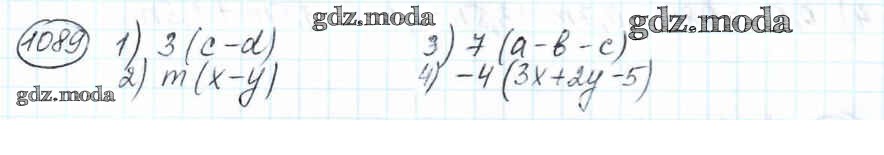 gdz.moda
gdz.moda
1089 1) 3(c-d) 3) 7(a-b-c)
2) m(x-y) 4) -4(3x+2y-5)
gdz.moda